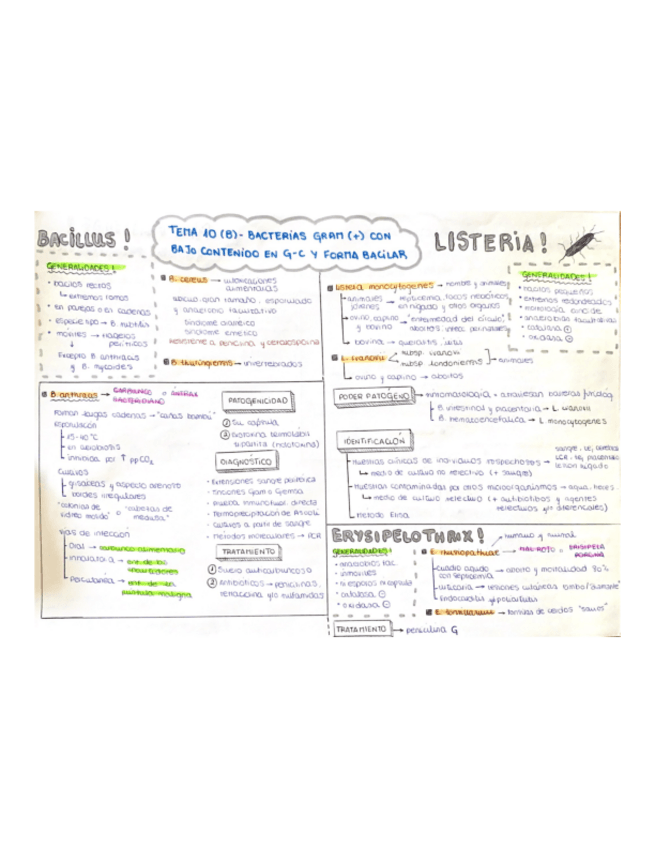 TEMA 10 (B)- BACTERIAS GRAM (+) CON
BAJO CONTENIDO EN G-C Y FORMA BACILAR
BACILLUS!
GENERALIDADES!
• bacilos rectos
↳ extremos romos
• en parejas o en cadenas
• especie tipo → B. subtilis
• móviles → flagelos
perítricos
Excepto B. anthracis
y B. mycoides
B. cereus → intoxicaciones
alimentarias
gran tamaño, esporulado
y anaerobio facultativo
síndrome diarreico
síndrome emético
resistente a penicilina y cefalosporina
B. thuringiensis → invertebrados
B. anthracis → CARBUNCO o ÁNTRAX
BACTERIDIANO
Forman largas cadenas → "cañas bambú"
esporulación
15-40 °C
en aerobiosis
inhibida por ↑ ppCO2
cultivos
grisáceas y aspecto arenoso
bordes irregulares
"colonias de vidrio molido" o "cabezas de medusa"
vías de infección
Oral → carbunco alimentario
Inhalatoria → enf. de los cardadores
Percutánea → enf. de la pústula maligna
PATOGENICIDAD
① Su cápsula
② Exotoxina termolábil
tripartita
DIAGNÓSTICO
• Extensiones sangre periférica
• Tinciones Gram o Giemsa
• Prueba inmunofluor. directa
• Termoprecipitación de Ascoli
• Cultivos a partir de sangre
• Métodos moleculares → PCR
TRATAMIENTO
① Suero anticarbuncoso
② Antibióticos → penicilinas,
tetraciclina y/o sulfamidas
LISTERIA!
GENERALIDADES!
• bacilos pequeños
• extremos redondeados
• anaerobias facultativas
• catalasa ⊕
• oxidasa ⊖
Listeria monocytogenes → hombre y animales
animales jóvenes → septicemia, focos necróticos
en hígado y otros órganos
ovino, caprino y bovino → "enfermedad del círculo",
abortos, infec. perinatales
bovino → queratitis, iritis
L. ivanovii
subsp. ivanovii
subsp. londoniensis
→ animales
ovino y caprino → abortos
PODER PATÓGENO → inmunología + atraviesan barreras fisiológ.
F. intestinal y placentaria → L. ivanovii
B. hematoencefálica → L. monocytogenes
IDENTIFICACIÓN
muestras clínicas de individuos sospechosos → sangre, LCR, placenta
↳ medio de cultivo no selectivo (+ sangre)
muestras contaminadas por otros microorganismos → agua, heces
↳ medio de cultivo selectivo (+ antibióticos y agentes
selectivos y/o diferenciales)
Método Elisa
ERYSIPELOTHRIX!
GENERALIDADES!
• anaerobios fac.
• inmóviles
• ni esporas ni cápsula
• catalasa ⊖
• oxidasa ⊖
humano y animal
E. rhusiopathiae → MAL ROJO o ERISIPELA
PORCINA
Cuadro agudo → aborto y mortalidad 90%
con septicemia
urticaria → lesiones cutáneas rombo/"diamante"
Endocarditis y poliartritis
E. tonsillarum → tonsilas de cerdos "sanos"
TRATAMIENTO → penicilina G